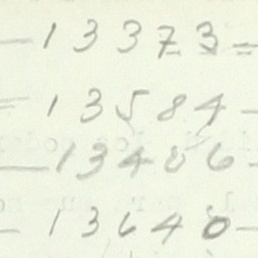 - 13373 =
= 13584 -
- 13406 -
- 13640 -